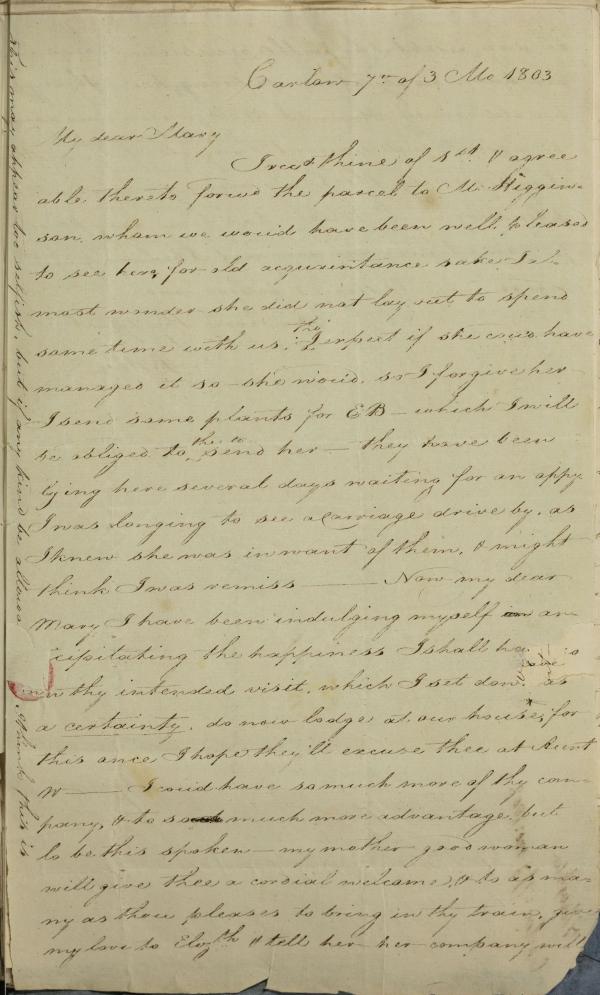 Carlow 7th of 3 Mo 1803
My dear Mary
I recd thine of 1st & agree
able thereto forwd the parcel to M. Higgin-
son, whom we would have been well pleased
to see here, for old acquaintance sake I al-
most wonder she did not lay out to spend
some time with us; tho' I expect if she could have
managed it so she would, so I forgive her
I send some plants for EB which I will
be obliged to thee to send her they have been
lying here several days waiting for an oppy.
I was longing to see a Carriage drive by, as
I knew she was in want of them, & might
think I was remiss Now my dear
Mary I have been indulging myself in an
cipitating the happiness I shall have is
in thy intended visit, which I set down as
a certainty, do now lodge at our house, for
this once I hope they'll excuse thee at Aunt
W I could have so much more of thy com-
pany, & to so much more advantage, but
lo be this spoken my mother good woman
will give thee a cordial welcome, & to as ma-
ny as thou pleases to bring in thy train, give
my love to Elizth & tell her her company will
this may appear too selfish, but if any kind be allowed I think this is